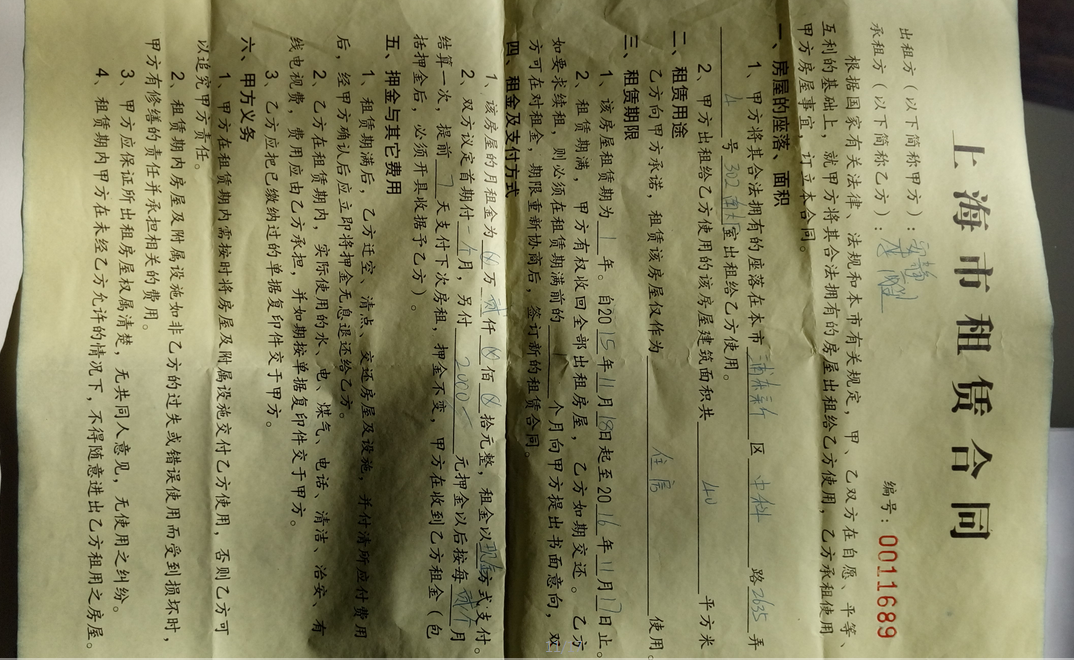 上海市租赁合同
编号：0011689
出租方（以下简称甲方）：
承租方（以下简称乙方）：
根据国家有关法律、法规和本市有关规定，甲、乙双方在自愿、平等、
互利的基础上，就甲方将其合法拥有的房屋出租给乙方使用，乙方承租使用
甲方房屋事宜，订立本合同。
一、房屋的座落、面积
1、甲方将其合法拥有的座落在本市 浦东新 区 中科 路 2635 弄
4 号 302 室出租给乙方使用。
2、甲方出租给乙方使用的该房屋建筑面积共 40 平方米
二、租赁用途
乙方向甲方承诺，租赁该房屋仅作为 住房 使用。
三、租赁期限
1、该房屋租赁期为 1 年。自2015年11月18日起至2016年11月17日止。
2、租赁期满，甲方有权收回全部出租房屋，乙方如期交还。乙方
如要求续租，则必须在租赁期满前的 个月向甲方提出书面意向，双
方可在对租金，期限重新协商后，签订新的租赁合同。
四、租金及支付方式
1、该房屋的月租金为 万 仟 佰 拾元整，租金以现金方式支付。
2、双方议定首期付 一个 月，另付 2000 元押金以后按每 月
结算一次，提前 7 天支付下次房租，押金不变，甲方在收到乙方租金（包
括押金后，必须开具收据予乙方）。
五、押金与其它费用
1、租赁期满后，乙方迁空、清点、交还房屋及设施，并付清所应付费用
后，经甲方确认后应立即将押金无息退还给乙方。
2、乙方在租赁期内，实际使用的水、电、煤气、电话、清洁、治安、有
线电视费，费用应由乙方承担，并如期按单据复印件交于甲方。
3、乙方应把已缴纳过的单据复印件交于甲方。
六、甲方义务
1、甲方在租赁期内需按时将房屋及附属设施交付乙方使用，否则乙方可
以追究甲方责任。
2、租赁期内房屋及附属设施如非乙方的过失或错误使用而受到损坏时，
甲方有修缮的责任并承担相关的费用。
3、甲方应保证所出租房屋权属清楚，无共同人意见，无使用之纠纷。
4、租赁期内甲方在未经乙方允许的情况下，不得随意进出乙方租用之房屋。